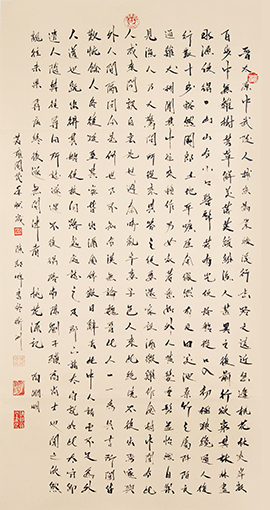 晉太原中武陵人捕魚為業緣溪行忘路之遠近忽逢桃花林夾岸數
百步中無雜樹芳草鮮美落英繽紛漁人甚異之復前行欲窮其林林盡
水源便得一山山有小口仿佛若有光便舍船從口入初極狹才通人復
行數十步豁然開朗土地平曠屋舍儼然有良田美池桑竹之屬阡陌交
通雞犬相聞其中往來種作男女衣著悉如外人黃髮垂髫並怡然自樂
見漁人乃大驚問所從來具答之便要還家設酒殺雞作食村中聞有此
人咸來問訊自云先世避秦時亂率妻子邑人來此絕境不復出焉遂與
外人間隔問今是何世乃不知有漢無論魏晉此人一一為具言所聞皆
歎惋餘人各復延至其家皆出酒食停數日辭去此中人語云不足為外
人道也既出得其船便扶向路處處誌之及郡下詣太守說如此太守即
遣人隨其往尋向所誌遂迷不復得路南陽劉子驥高尚士也聞之欣然
規往未果尋病終後遂無問津者 桃花源記 陶淵明